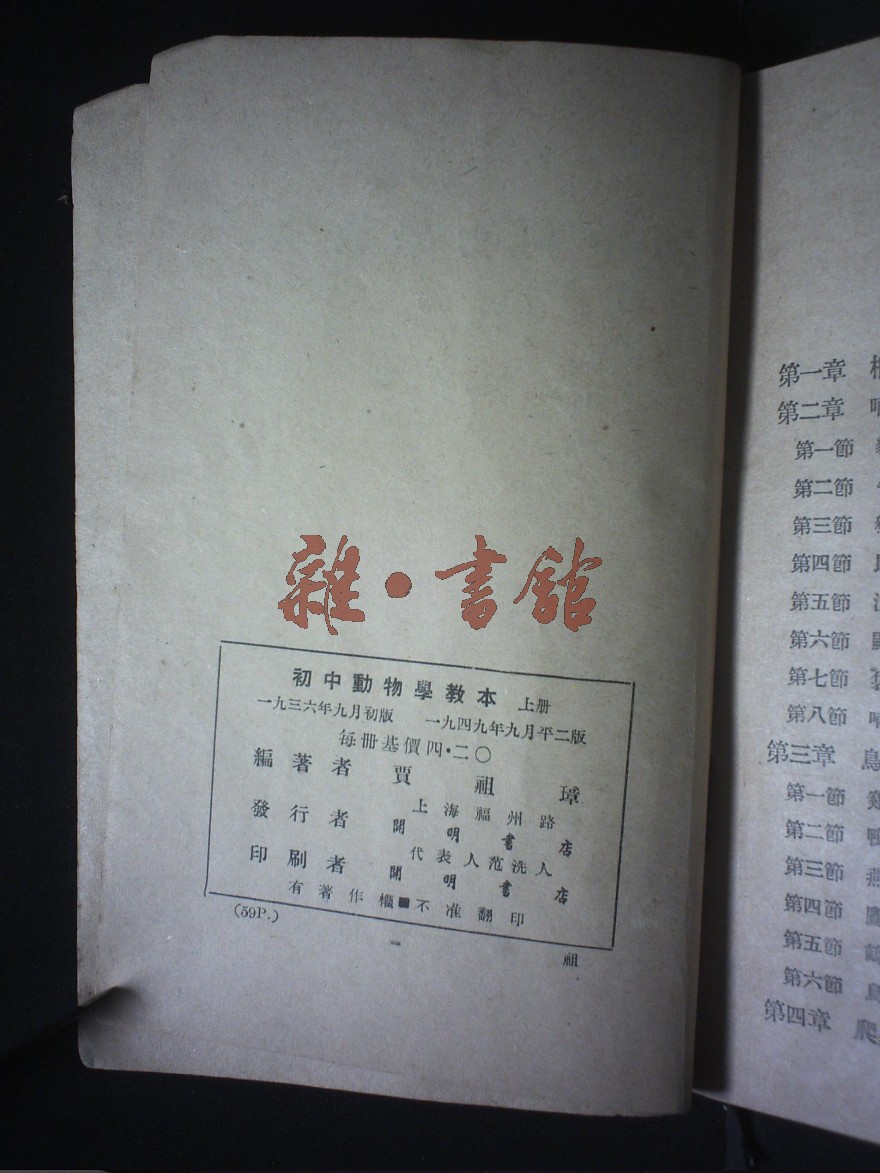 雜·書館
初中動物學教本 上册
一九三六年九月初版 一九四九年九月平二版
每册基價四·二〇
編著者 賈祖璋
發行者 上海福州路
開明書店
代表人范洗人
印刷者 開明書店
有著作權■不准翻印
(59P.)
祖
第一章
第二章
第一節
第二節
第三節
第四節
第五節
第六節
第七節
第八節
第三章 鳥
第一節
第二節 鴨
第三節 燕
第四節 鷹
第五節 鶴
第六節 鳥
第四章 爬